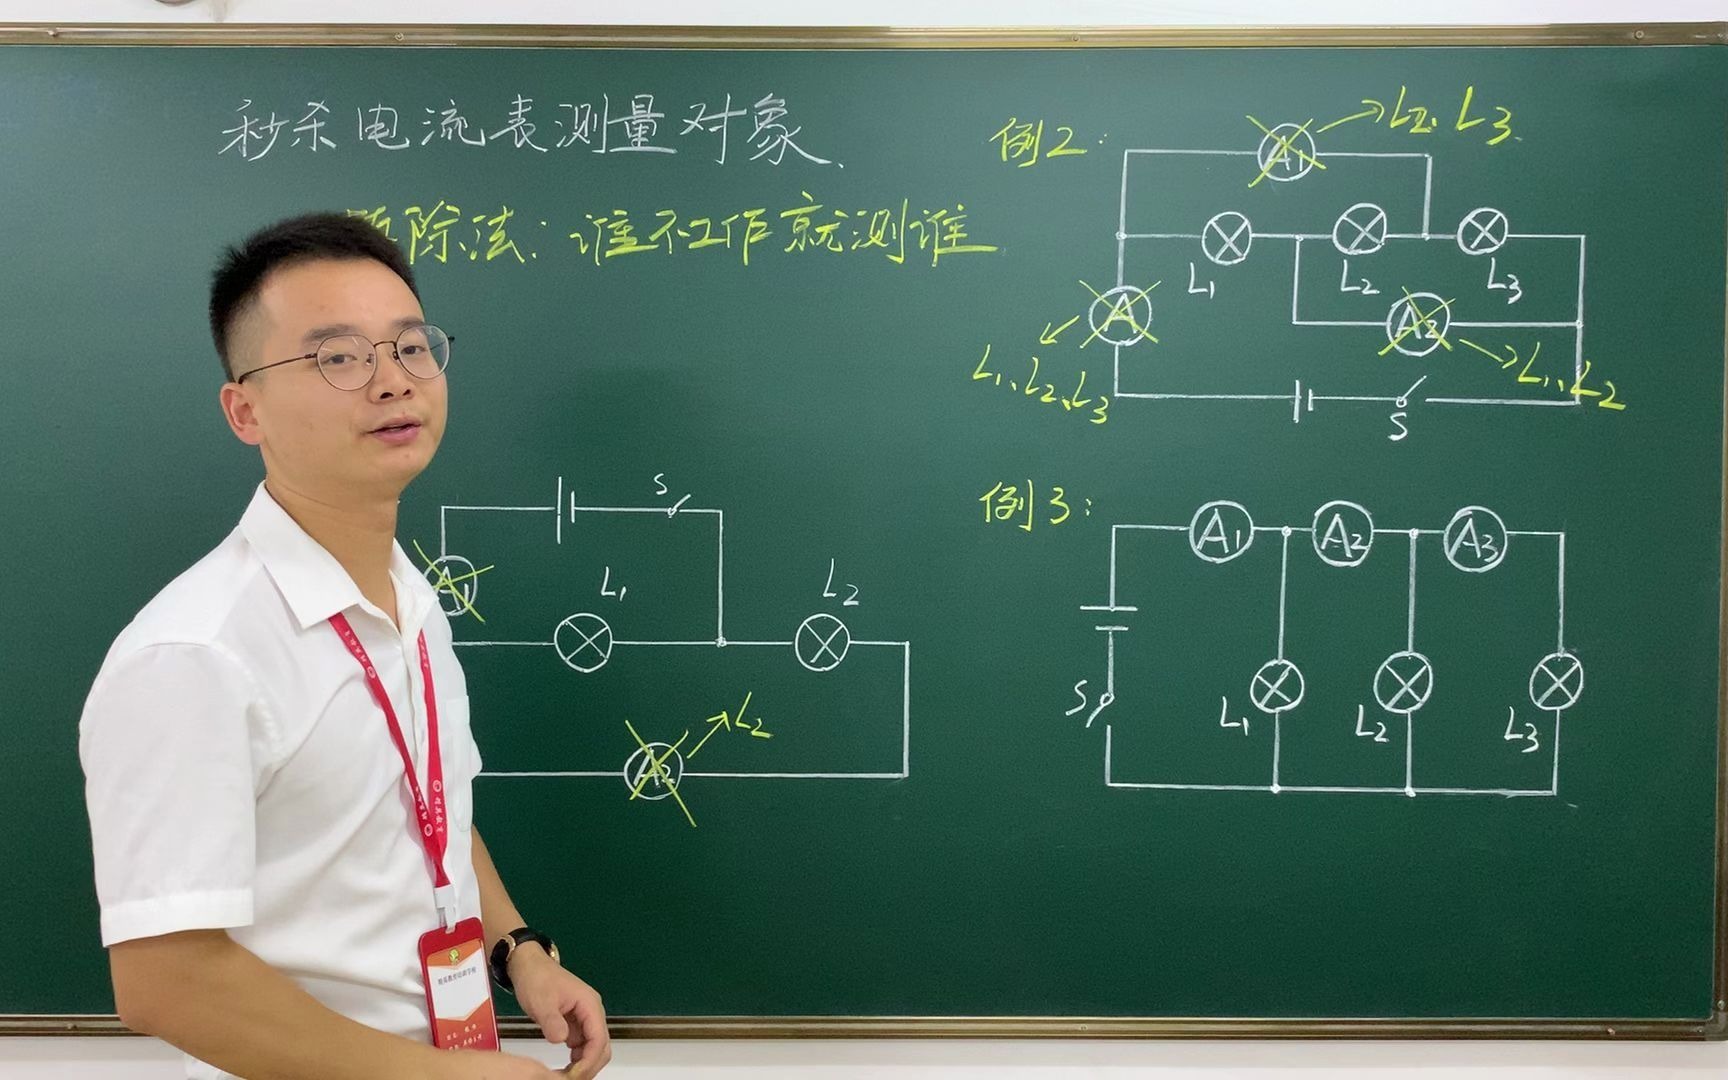 秒杀电流表测量对象.
除法:谁不工作就测谁
S
A₁
L₁
L₂
A₂
L₂
例2:
A₁
L₂、L₃
L₁
L₂
L₃
A
A₂
L₁、L₂、L₃
L₁、L₂
S
例3:
A₁
A₂
A₃
S
L₁
L₂
L₃